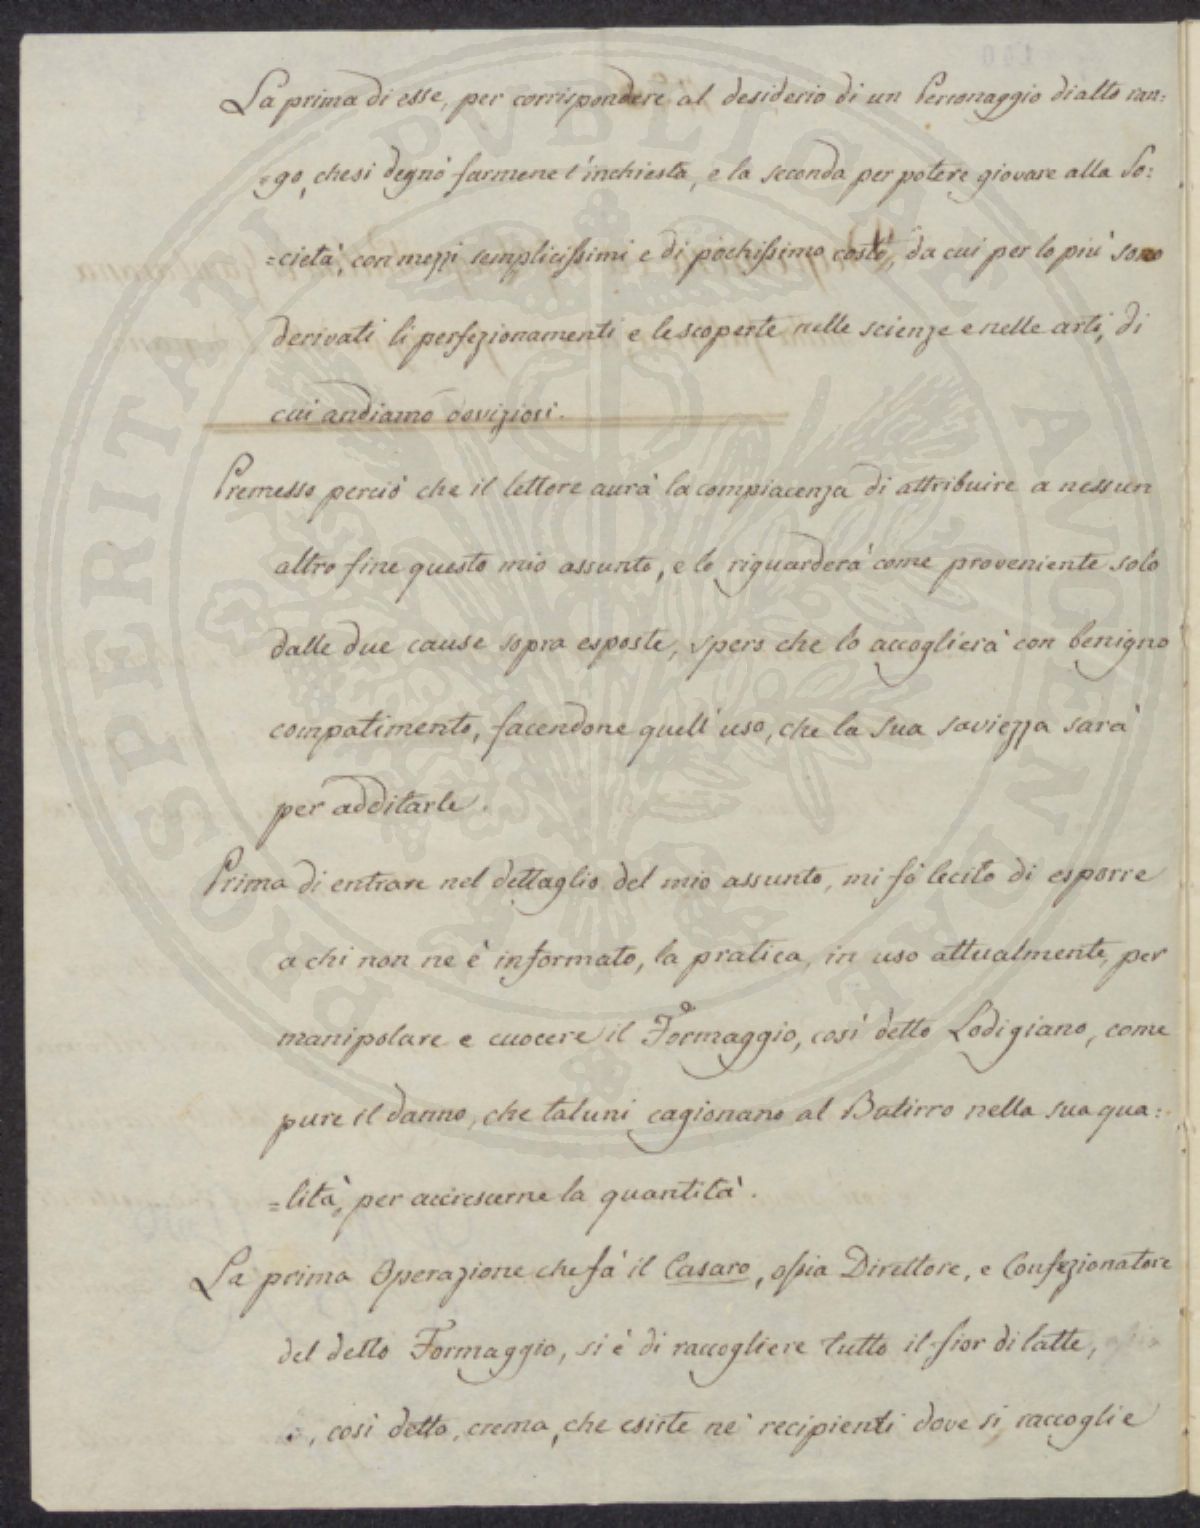 La prima di esse, per corrispondere al desiderio di un Personaggio di alto ran:
=go, che si degnò farmene l'inchiesta, e la seconda per potere giovare alla So:
=cietà, con mezzi semplicissimi e di pochissimo costo, da cui per lo più sono
derivati li perfezionamenti e le scoperte nelle scienze e nelle arti, di
cui andiamo doviziosi.
Premesso perciò che il lettore aurà la compiacenza di attribuire a nessun
altro fine questo mio assunto, e lo riguarderà come proveniente solo
dalle due cause sopra esposte, spero che lo accoglierà con benigno
compatimento, facendone quell'uso, che la sua saviezza sarà
per additarle.
Prima di entrare nel dettaglio del mio assunto, mi fò lecito di esporre
a chi non ne è informato, la pratica, in uso attualmente, per
manipolare e cuocere il Formaggio, così detto Lodigiano, come
pure il danno, che taluni cagionano al Butirro nella sua qua:
=lità, per accrescerne la quantità.
La prima Operazione che fà il Casaro, ossia Direttore, e Confezionatore
del detto Formaggio, si è di raccogliere tutto il fior di latte,
, così detto, crema, che esiste ne' recipienti dove si raccoglie
PROSPERITATI PVBLICAE AVGENDAE